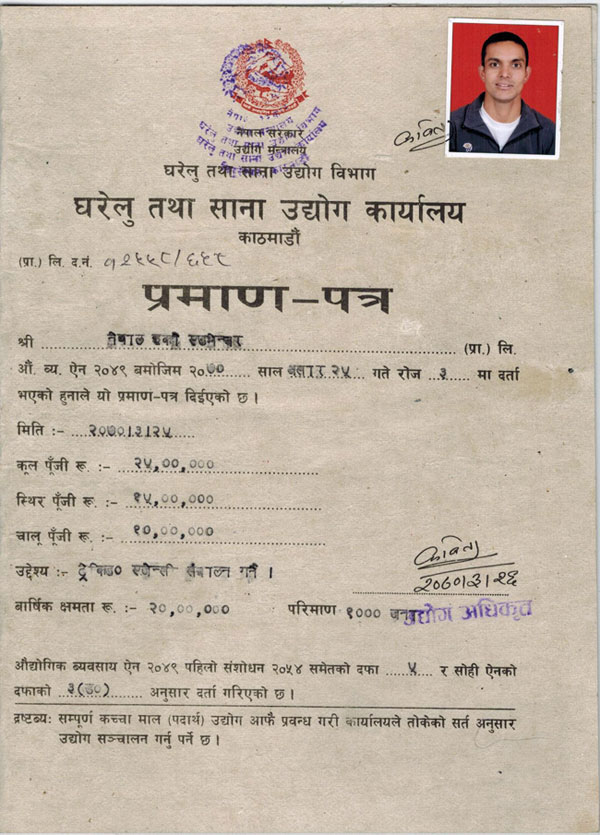 नेपाल सरकार
उद्योग मन्त्रालय
घरेलु तथा साना उद्योग विभाग
घरेलु तथा साना उद्योग कार्यालय
काठमाडौं
कविता
(प्रा.) लि. द.नं. १२५५८/६६८
प्रमाण-पत्र
श्री नेपाल (प्रा.) लि.
औ. ब्य. ऐन २०४९ बमोजिम २०७० साल असार २५ गते रोज ३ मा दर्ता
भएको हुनाले यो प्रमाण-पत्र दिईएको छ ।
मिति :- २०७०।३।२५
कूल पूँजी रू. :- २५,००,०००
स्थिर पूँजी रू. :- १५,००,०००
चालू पूँजी रू. :- १०,००,०००
कविता
२०७०।३।२६
उद्देश्य :- ट्रेकिङ० एजेन्सी संचालन गर्ने ।
बार्षिक क्षमता रू. :- २०,००,००० परिमाण १००० जना
उद्योग अधिकृत
औद्योगिक ब्यवसाय ऐन २०४९ पहिलो संशोधन २०५४ समेतको दफा ५ र सोही ऐनको
दफाको ३(ङ०) अनुसार दर्ता गरिएको छ ।
द्रष्टब्य: सम्पूर्ण कच्चा माल (पदार्थ) उद्योग आफै प्रवन्ध गरी कार्यालयले तोकेको सर्त अनुसार
उद्योग सञ्चालन गर्नु पर्ने छ ।